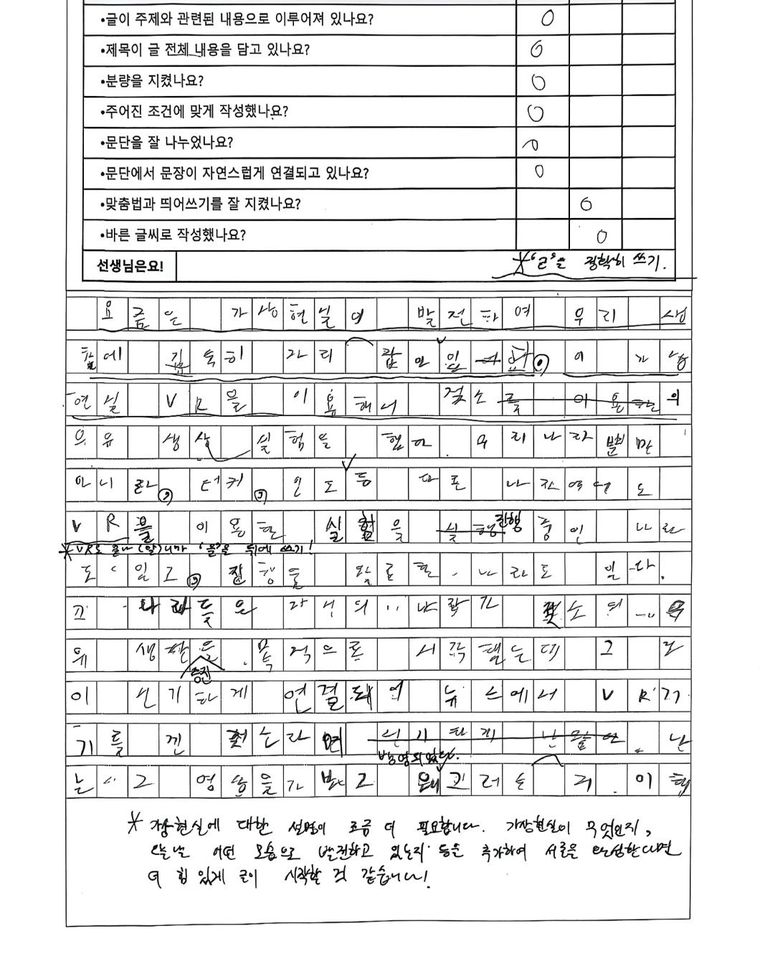 •글이 주제와 관련된 내용으로 이루어져 있나요? O
•제목이 글 전체 내용을 담고 있나요? O
•분량을 지켰나요? O
•주어진 조건에 맞게 작성했나요? O
•문단을 잘 나누었나요? O
•문단에서 문장이 자연스럽게 연결되고 있나요? O
•맞춤법과 띄어쓰기를 잘 지켰나요? O
•바른 글씨로 작성했나요? O
선생님은요! *'ㄹ'을 정확히 쓰기.
요즘은 가상현실이 발전하여 우리 생
활에 깊숙히 자리 잡아 있
현실 VR을 이용해서 젖소 의
우유 생산 실험을 했다. 우리나라 뿐만
아니라, 터키, 인도 등 다른 나라에서도
VR을 이용한 실험을 진행 중인 나라
도 있고, 진행을 완료한 나라도 있다.
그 나라들은 자신의 나라가 젖소의 우
유 생산 증진 목적으로 시작했는데 그
이 신기하게 연결되어 뉴스에서 VR기
기를 낀 젖소라면 난
방영되었다.
는 그 영상을 보고 왜 그러는지 이해
* 가상현실에 대한 설명이 조금 더 필요합니다. 가상현실이 무엇인지,
오늘날 어떤 모습으로 발전하고 있는지 등을 추가하여 서론을 완성한다면
더 힘 있게 글이 시작할 것 같습니다!